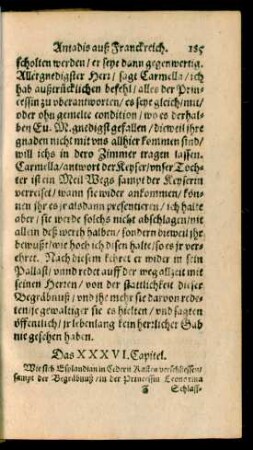 Amadis auß Franckreich. 185
scholten werden / er seye dann gegenwertig.
Allergnedigster Herr / sagt Carmella / ich
hab außtrücklichen befehl / alles der Prin-
cessin zu vberantworten / es seye gleich / mit /
oder ohn gemelte condition / wo es derhal-
ben Eu. M. gnedigst gefallen / dieweil ihre
gnaden nicht mit vns allhier kommen sind /
will ichs in dero Zimmer tragen lassen.
Carmella / antwort der Keyser / vnser Toch-
ter ist ein Meil Wegs sampt der Keyserin
verreiset / wann sie wider ankommen / kön-
nen ihr es jr alsdann presentieren / ich halte
aber / sie werde solchs nicht abschlagen / nit
allein deß werth halben / sondern dieweil jhr
bewußt / wie hoch ich disen halte / so es jr ver-
ehret. Nach diesem kehret er wider in sein
Pallast / vnnd redet auff der weg allzeit mit
seinen Herren / von der stattlichkeit dieser
Begräbnuß / vnd jhe mehr sie darvon rede-
ten / je gewaltiger sie es hielten / vnd sagten
öffentlich / jr lebenlang kein herrlicher Gab
nie gesehen haben.
Das XXXVI. Capitel.
Wie sich Esplandian in Cedern Kasten verschliessen /
sampt der Begräbnuß / in der Princessin Leonorina
Schlaff-